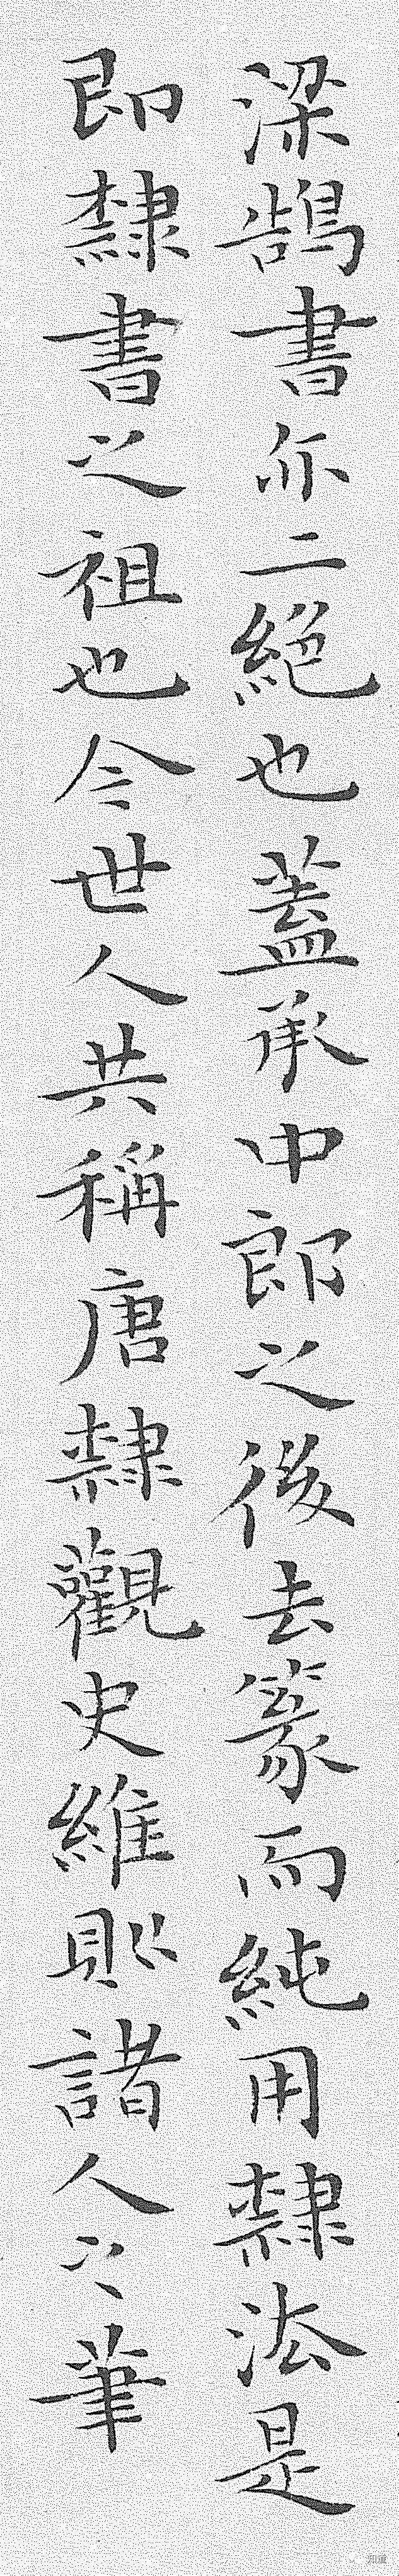 梁鵠書亦二絕也蓋承中郎之後去篆而純用隸法是
即隸書之祖也今世人共稱唐隸觀史維則諸人之筆